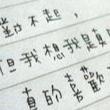 對不起，
但我想我是真
真的喜歡